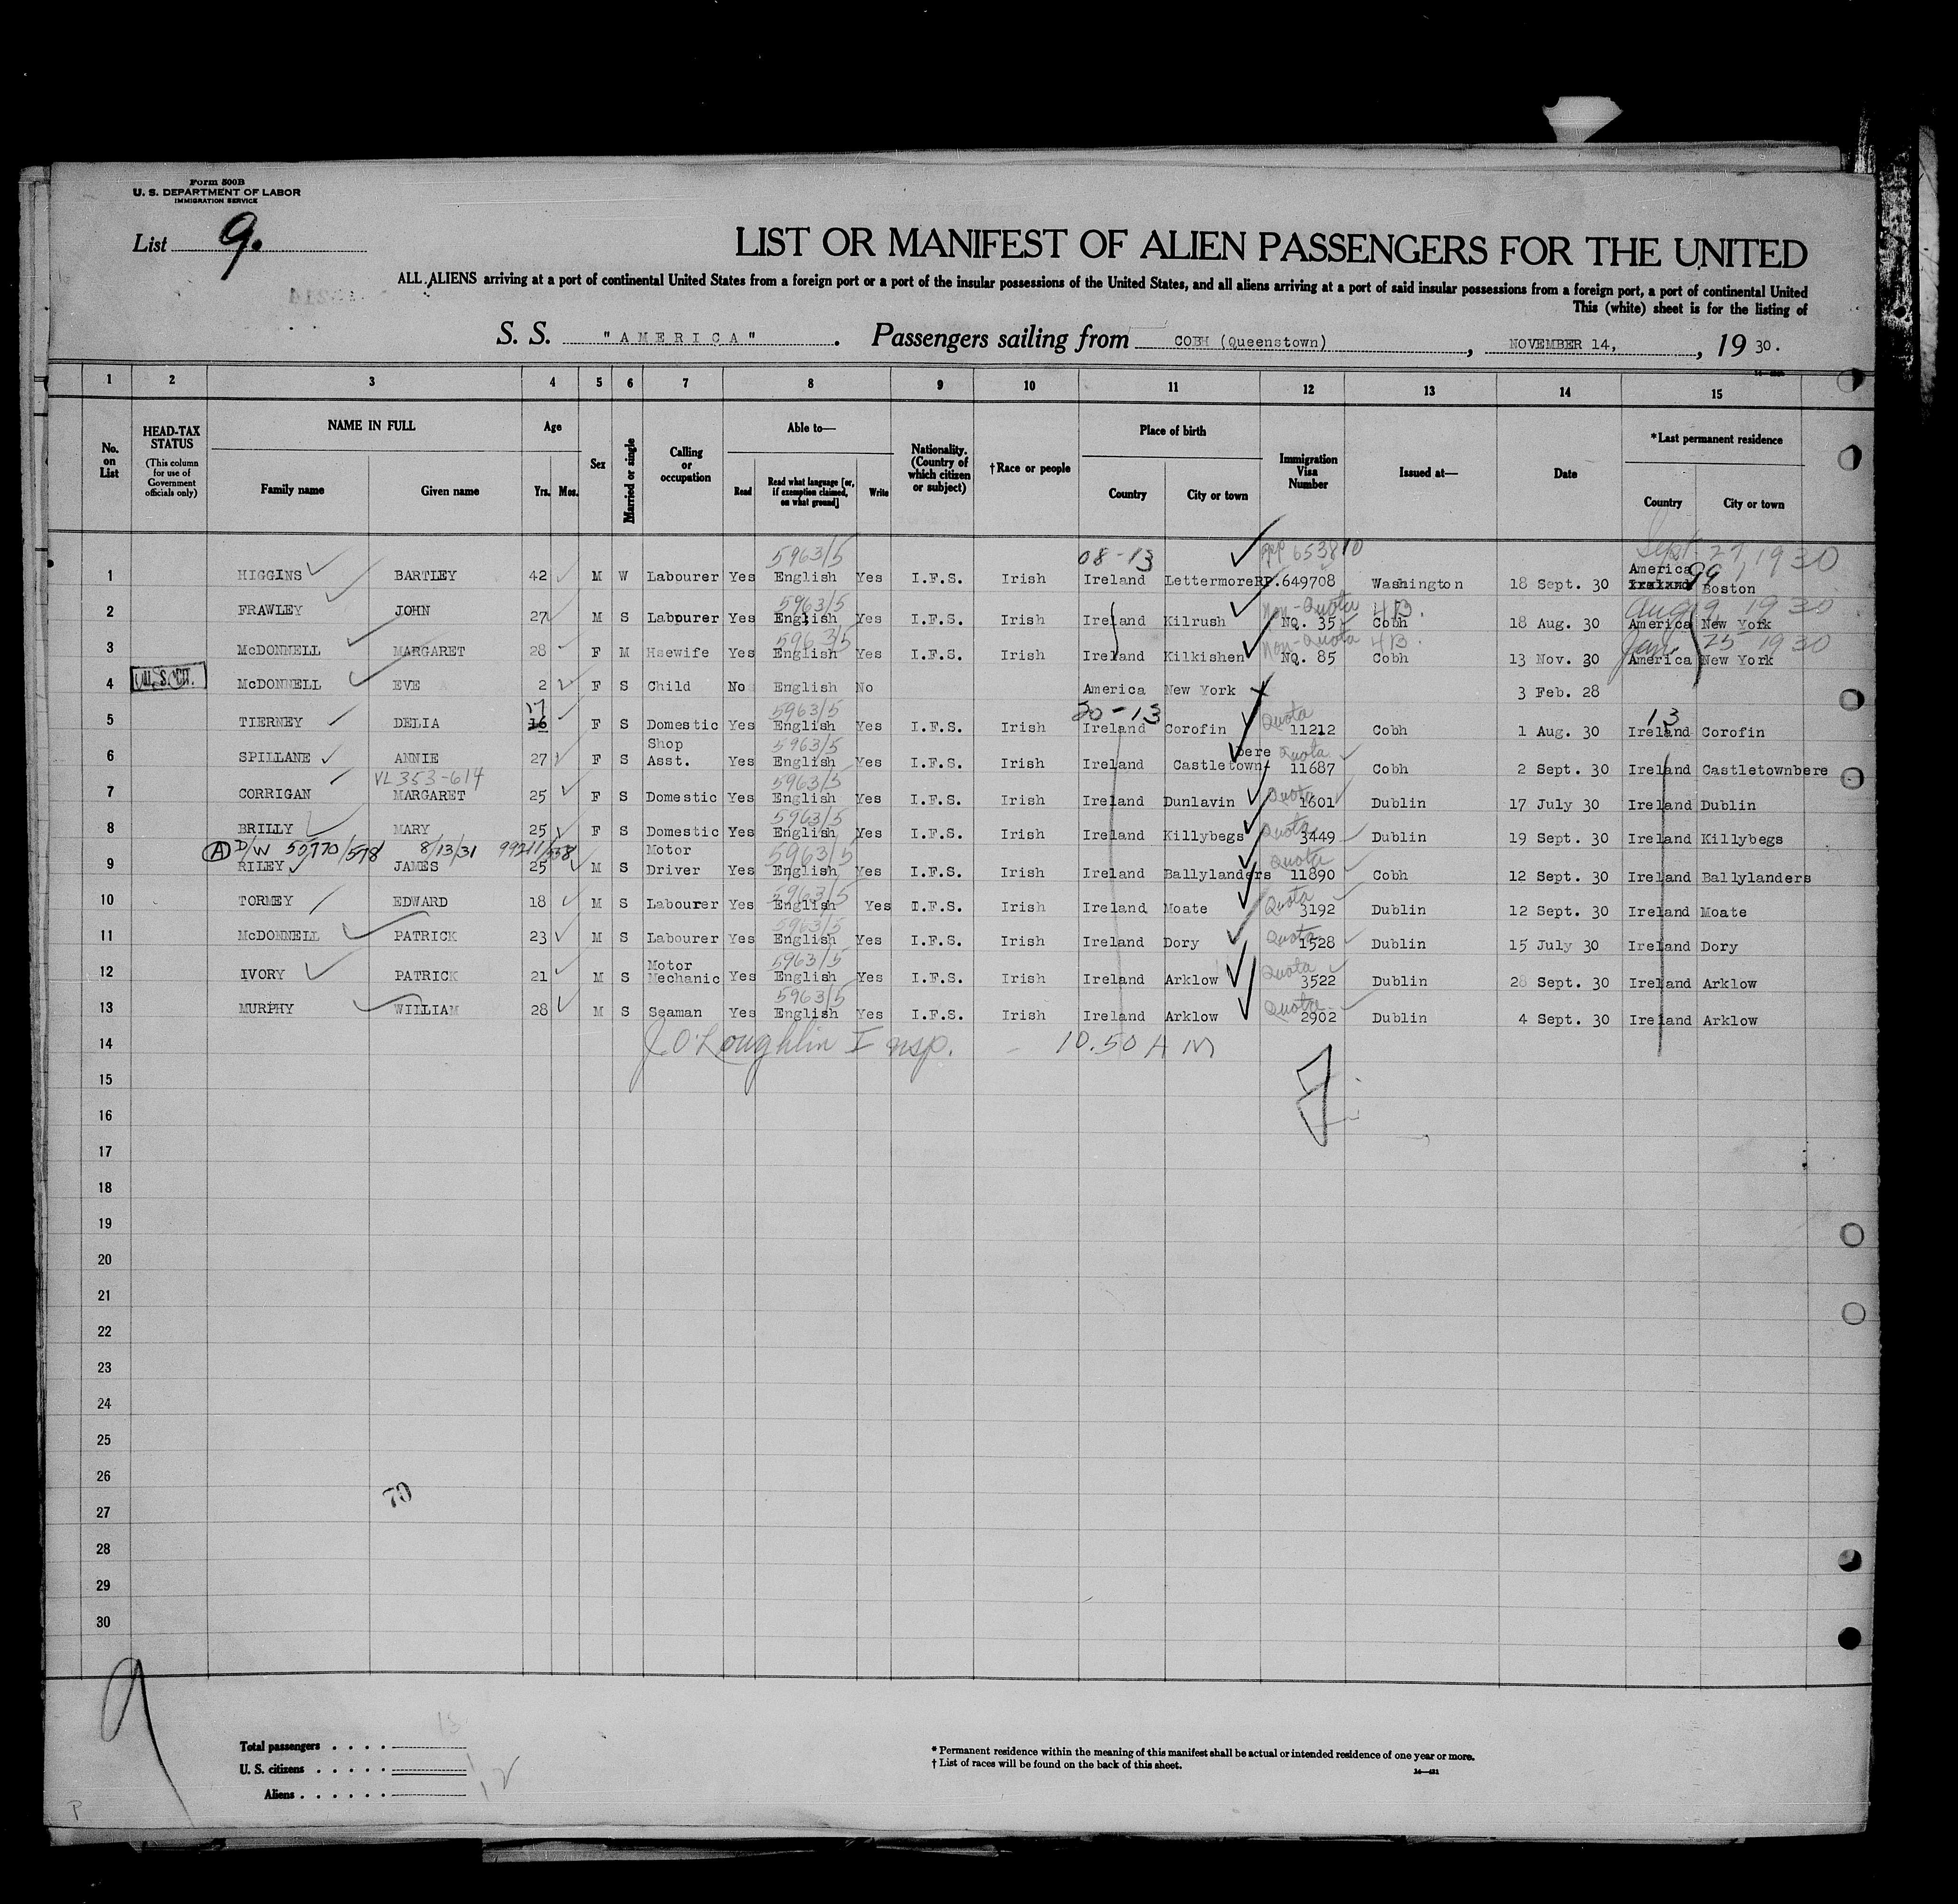 Form 500B
U. S. DEPARTMENT OF LABOR
IMMIGRATION SERVICE
List 9.
LIST OR MANIFEST OF ALIEN PASSENGERS FOR THE UNITED
ALL ALIENS arriving at a port of continental United States from a foreign port or a port of the insular possessions of the United States, and all aliens arriving at a port of said insular possessions from a foreign port, a port of continental United
This (white) sheet is for the listing of
S. S. "AMERICA". Passengers sailing from COBH (Queenstown), NOVEMBER 14, 19 30.
1 2 3 4 5 6 7 8 9 10 11 12 13 14 15
No. on List
HEAD-TAX STATUS (This column for use of Government officials only)
NAME IN FULL
Family name Given name
Age
Yrs. Mos.
Sex
Married or single
Calling or occupation
Able to—
Read
Read what language [or, if exemption claimed, on what ground]
Write
Nationality. (Country of which citizen or subject)
†Race or people
Place of birth
Country City or town
Immigration Visa Number
Issued at—
Date
*Last permanent residence
Country City or town
5963/5 08-13 653810 Sept 27, 1930
1 HIGGINS BARTLEY 42 M W Labourer Yes English Yes I.F.S. Irish Ireland Lettermore RP.649708 Washington 18 Sept. 30 America Ireland Boston
5963/5 Non-Quota 4B. Aug 9, 1930
2 FRAWLEY JOHN 27 M S Labourer Yes English Yes I.F.S. Irish Ireland Kilrush NQ. 35 Cobh 18 Aug. 30 America New York
5963/5 Non-Quota 4B. Jan. 25 1930
3 McDONNELL MARGARET 28 F M Hsewife Yes English Yes I.F.S. Irish Ireland Kilkishen NQ. 85 Cobh 13 Nov. 30 America New York
4 U. S. CIT. McDONNELL EVE 2 F S Child No English No America New York 3 Feb. 28
17 5963/5 20-13 Quota 13
5 TIERNEY DELIA 16 F S Domestic Yes English Yes I.F.S. Irish Ireland Corofin 11212 Cobh 1 Aug. 30 Ireland Corofin
Shop 5963/5 bere Quota
6 SPILLANE ANNIE 27 F S Asst. Yes English Yes I.F.S. Irish Ireland Castletown- 11687 Cobh 2 Sept. 30 Ireland Castletownbere
VL 353-614 5963/5 Quota
7 CORRIGAN MARGARET 25 F S Domestic Yes English Yes I.F.S. Irish Ireland Dunlavin 1601 Dublin 17 July 30 Ireland Dublin
5963/5 Quota
8 BRILLY MARY 25 F S Domestic Yes English Yes I.F.S. Irish Ireland Killybegs 3449 Dublin 19 Sept. 30 Ireland Killybegs
A D/W 8/13/31 Motor 5963/5 Quota
9 RILEY JAMES 25 M S Driver Yes English Yes I.F.S. Irish Ireland Ballylanders 11890 Cobh 12 Sept. 30 Ireland Ballylanders
5963/5 Quota
10 TORMEY EDWARD 18 M S Labourer Yes English Yes I.F.S. Irish Ireland Moate 3192 Dublin 12 Sept. 30 Ireland Moate
5963/5 Quota
11 McDONNELL PATRICK 23 M S Labourer Yes English Yes I.F.S. Irish Ireland Dory 1528 Dublin 15 July 30 Ireland Dory
Motor 5963/5 Quota
12 IVORY PATRICK 21 M S Mechanic Yes English Yes I.F.S. Irish Ireland Arklow 3522 Dublin 28 Sept. 30 Ireland Arklow
5963/5 Quota
13 MURPHY WILLIAM 28 M S Seaman Yes English Yes I.F.S. Irish Ireland Arklow 2902 Dublin 4 Sept. 30 Ireland Arklow
14 J. O'Loughlin Insp. - 10.50 A M
15
16
17
18
19
20
21
22
23
24
25
26
27
28
29
30
70
9
Total passengers 13
U. S. citizens 1
Aliens 12
* Permanent residence within the meaning of this manifest shall be actual or intended residence of one year or more.
† List of races will be found on the back of this sheet.
P